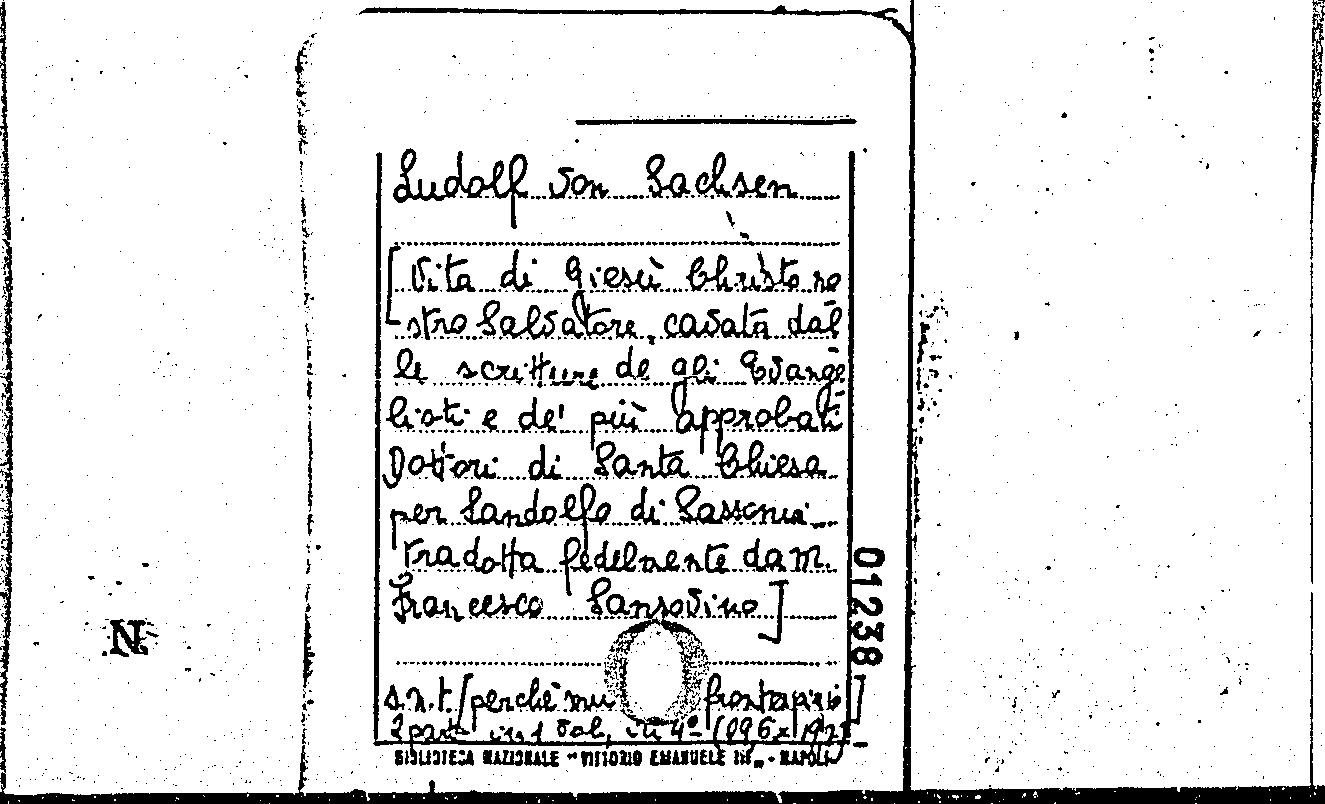 Ludolf von Sachsen
[Vita di Giesù Christo no
stro Salvatore, cavata dal
le scritture de gli Evange
listi e de' più approbati
Dottori di Santa Chiesa
per Landolfo di Sassonia
tradotta fedelmente da m.
Francesco Sansovino]
01238
N
s.n.t. [perchè mu frontespizio]
2 parti in 1 vol, in 4º
BIBLIOTECA NAZIONALE "VITTORIO EMANUELE III" - NAPOLI